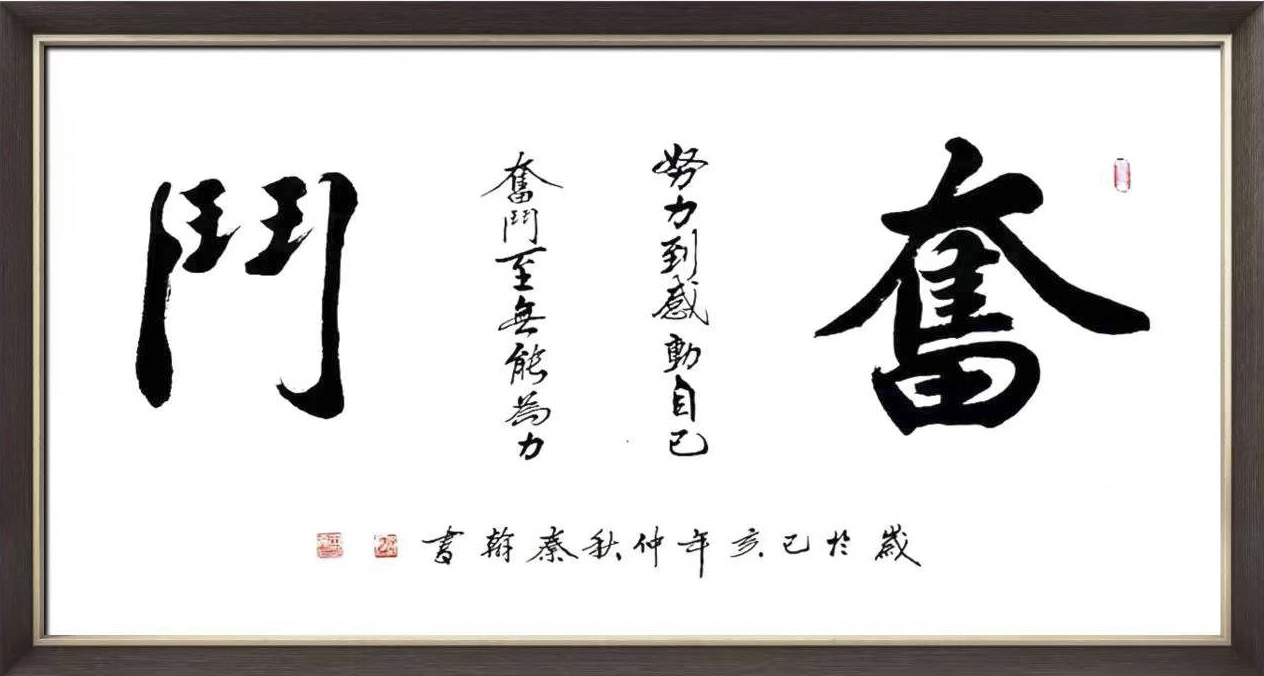 奮鬥
努力到感動自己
奮鬥至無能為力
歲於己亥年仲秋秦翰書